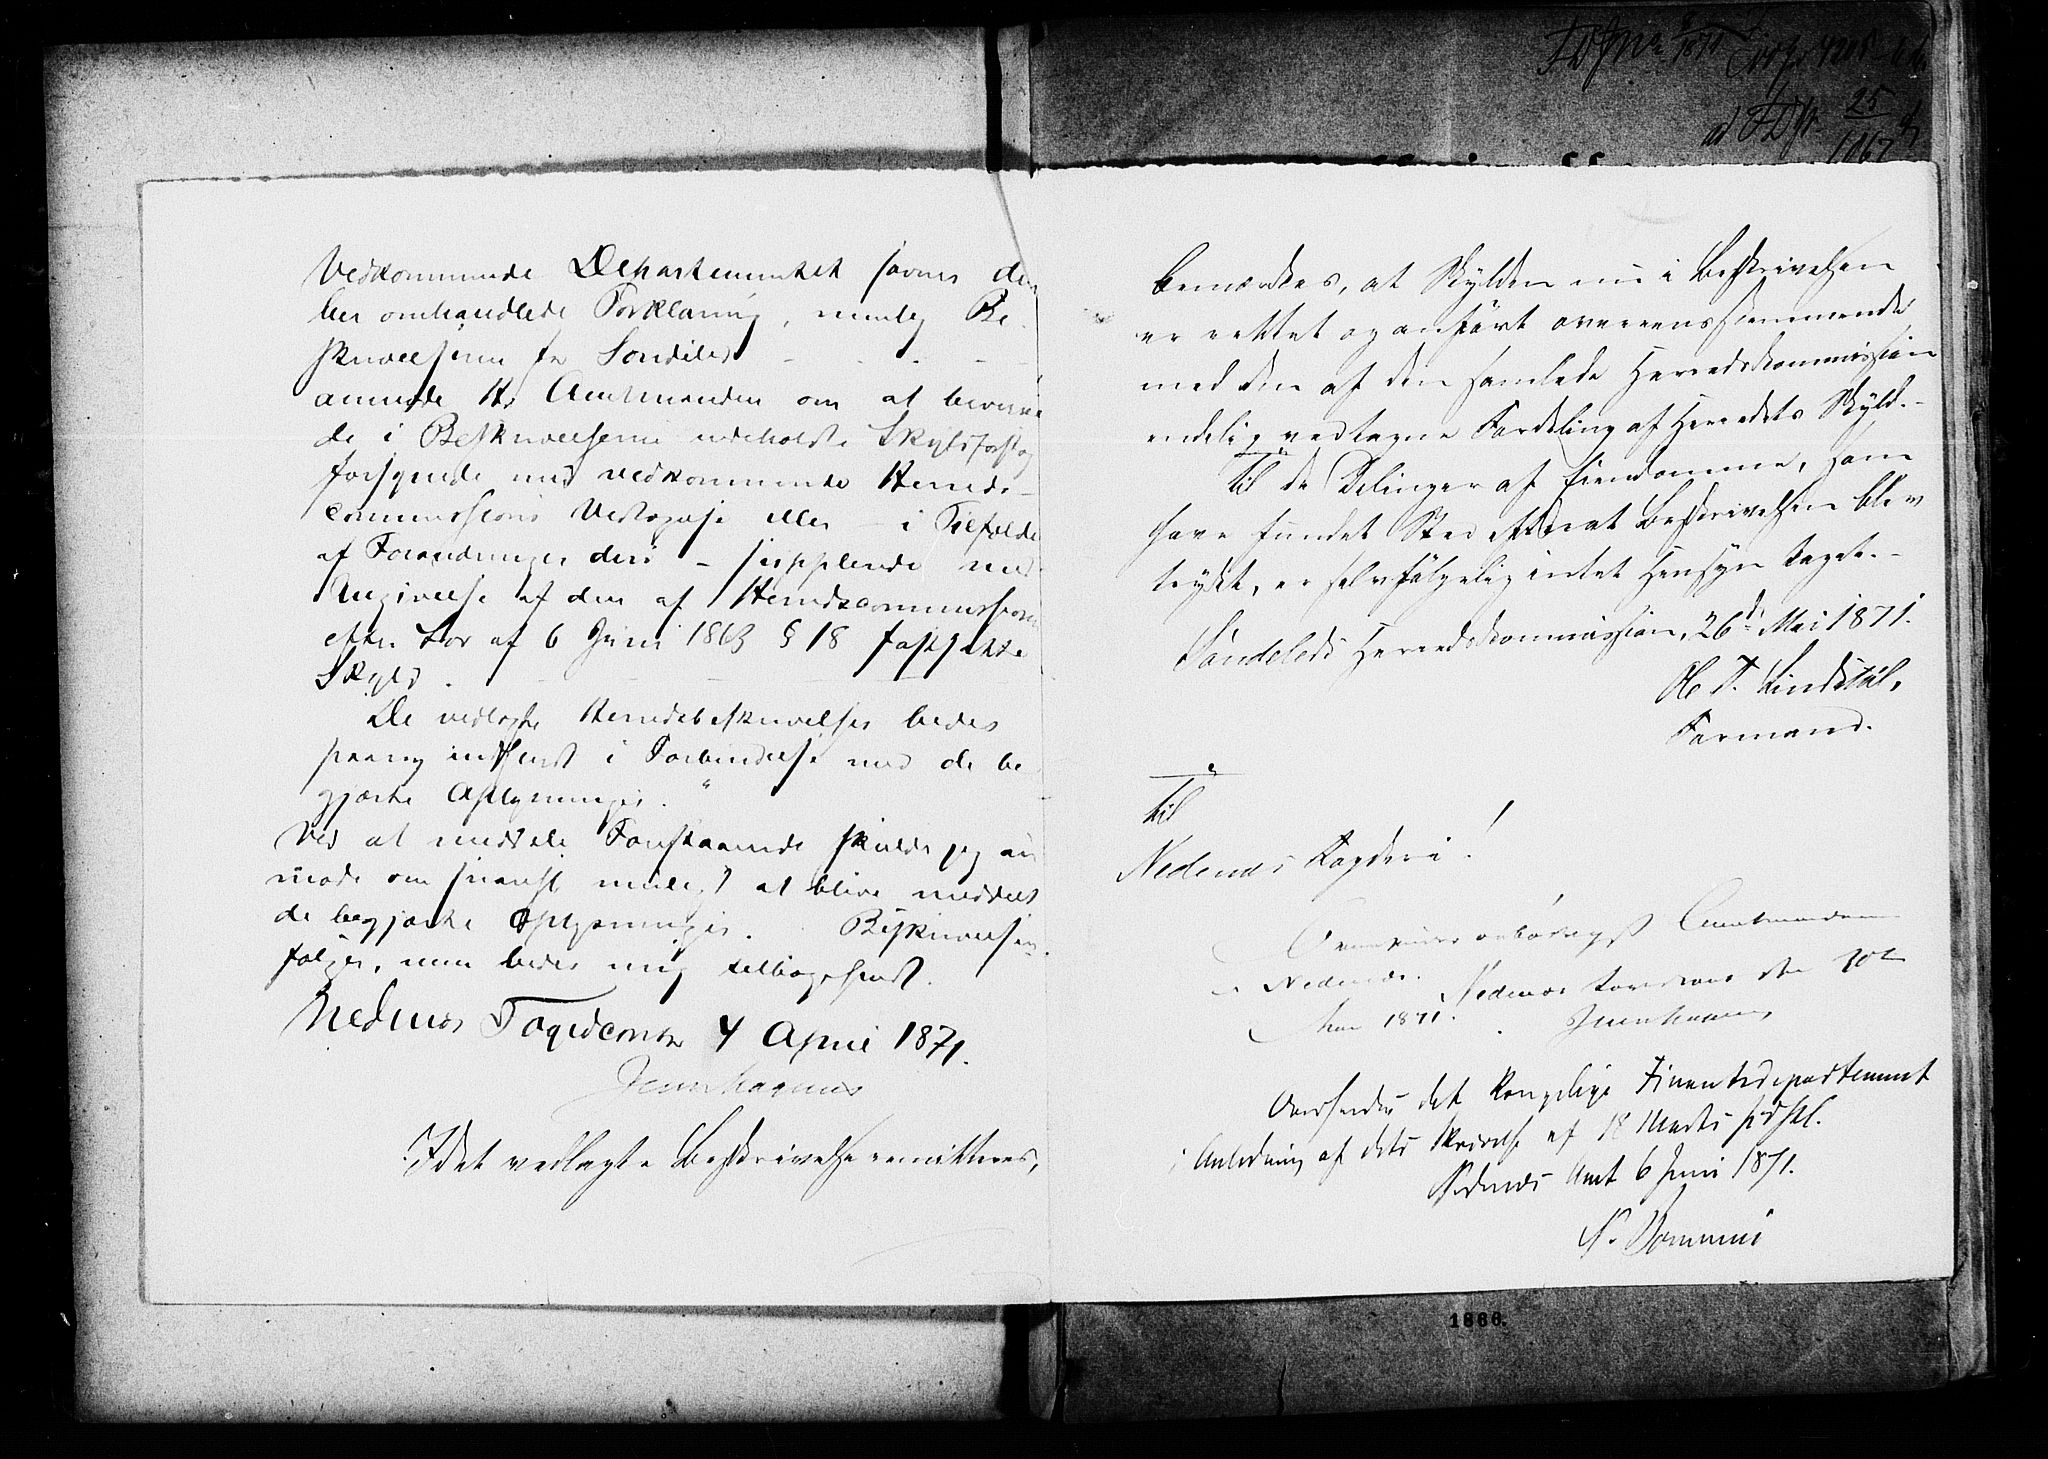 Vedkommende Departementet savner den
her omhandlede Forklaring, nemlig Be-
skrivelserne for Söndeled - - - -
anmode Hr Amtmanden om at bevirke
de i Beskrivelserne udeholdte Skyldforslag
forsynede med vedkommende Herreds-
commissions Vedtagelse eller - i Tilfælde
af Forandringer deri - supplerede med
Angivelse af den af Herredscommissionen
efter Lov af 6 Juni 1863 § 18 fastsatte
Skyld. - - - -
De vedlagte Herredsbeskrivelser bedes
paany indsendt i Forbindelse med de be-
gjærte Oplysninger."
Ved at meddele Foranstaaende skulde jeg an-
mode om snarest muligt at blive meddelt
de begjærte Oplysninger. Beskrivelsen
følger, men bedes mig tilbagesendt.
Nedenæs Fogderi 4 April 1871.
I det vedlagte Beskrivelse remitteres,
25
1867
bemærkes, at Skylden nu i Beskrivelsen
er rettet og anført overensstemmende
med den af den samlede Herredskommission
endelig vedtagne Fordeling af Herredets Skyld. -
Til de Delinger af Eiendomme, som
have fundet Sted efterat Beskrivelsen blev
trykt, er selvfølgelig intet Hensyn taget. -
Söndeleds Herredskommission, 26de Mai 1871.
O. T. Lindstøl,
Formand.
Til
Nedenæs Fogderi!
ærbødigst Amtmanden
i Nedenæs.
Nedenæs den
1871.
Oversendes det Kongelige Finantsdepartement
i Anledning af dets Skrivelse af 18 Marts sidstl.
Nedenæs Amt 6 Juni 1871.
1866.